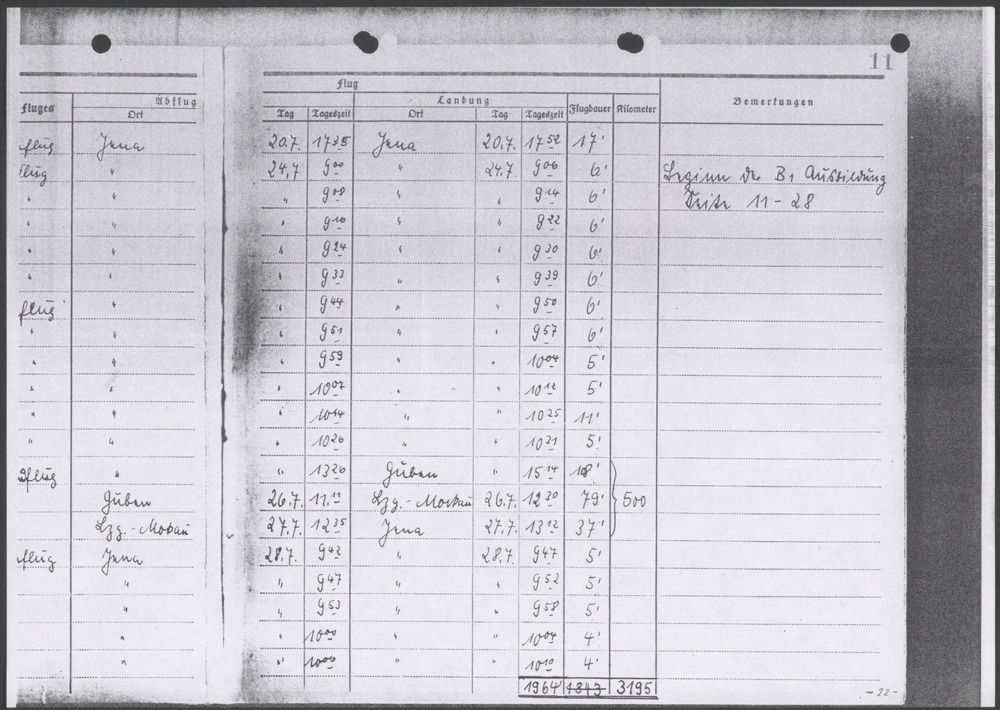 11
Flug
Fluges Abflug Landung Flugdauer Kilometer Bemerkungen
Ort Tag Tageszeit Ort Tag Tageszeit
flug Jena 20.7. 17 35 Jena 20.7. 17 52 17'
flug " 24.7 9 00 " 24.7 9 06 6' Beginn der B1 Ausbildung
" " " 9 08 " " 9 14 6' Seite 11 - 28
" " " 9 16 " " 9 22 6'
" " " 9 24 " " 9 30 6'
" " " 9 33 " " 9 39 6'
flug " " 9 44 " " 9 50 6'
" " " 9 51 " " 9 57 6'
" " " 9 59 " " 10 04 5'
" " " 10 07 " " 10 12 5'
" " " 10 14 " " 10 25 11'
" " " 10 26 " " 10 31 5'
flug " " 13 26 Guben " 15 14 108'
Guben 26.7. 11 11 Lzg.-Mockau 26.7. 12 30 79' 500
Lzg.-Mockau 27.7. 12 35 Jena 27.7. 13 12 37'
flug Jena 28.7. 9 42 " 28.7. 9 47 5'
" " 9 47 " " 9 52 5'
" " 9 53 " " 9 58 5'
" " 10 00 " " 10 04 4'
" " 10 06 " " 10 10 4'
1964' 1843 3195
- 22 -